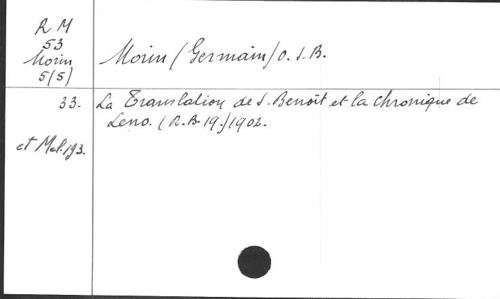 R M
53
Morin
5(5)
Morin (Germain) O. S. B.
33. La Translation de S. Benoît et la Chronique de
Leno. (R. B. 19.) 1902.
ct Mel. 193.